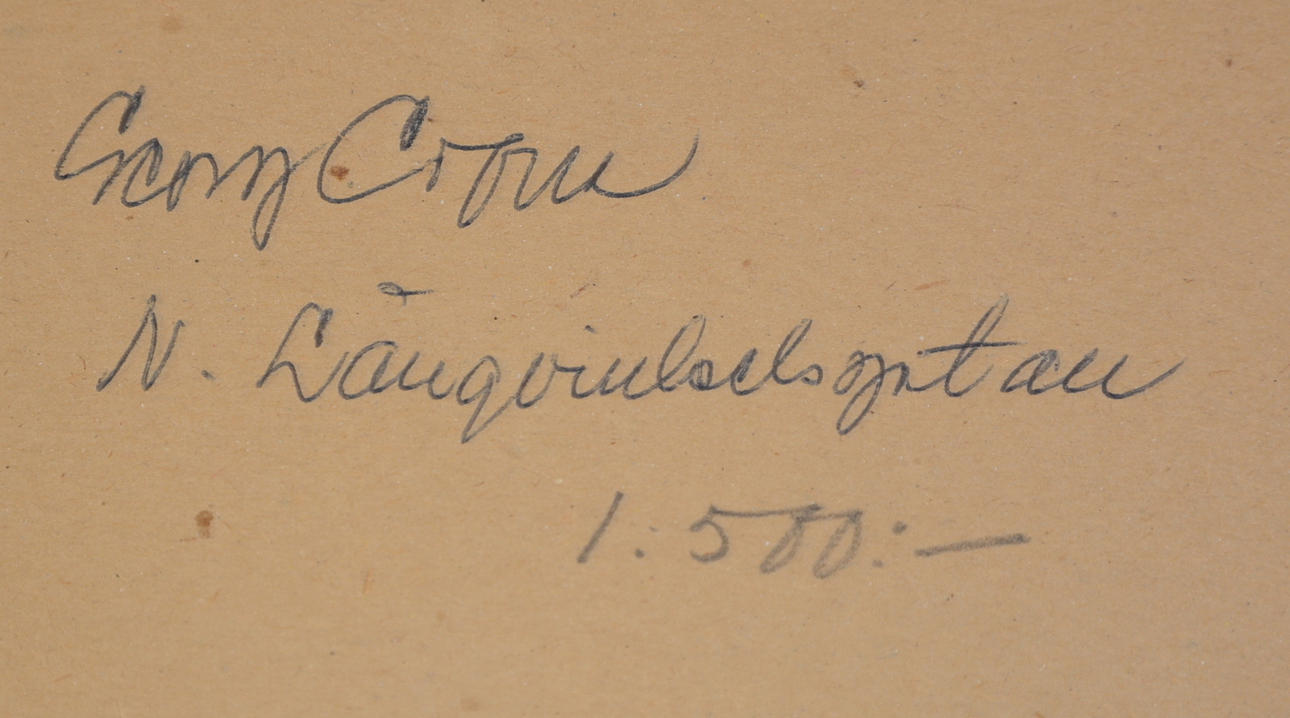 Georg Crona
N. Långvinkelsgatan
1:500:—